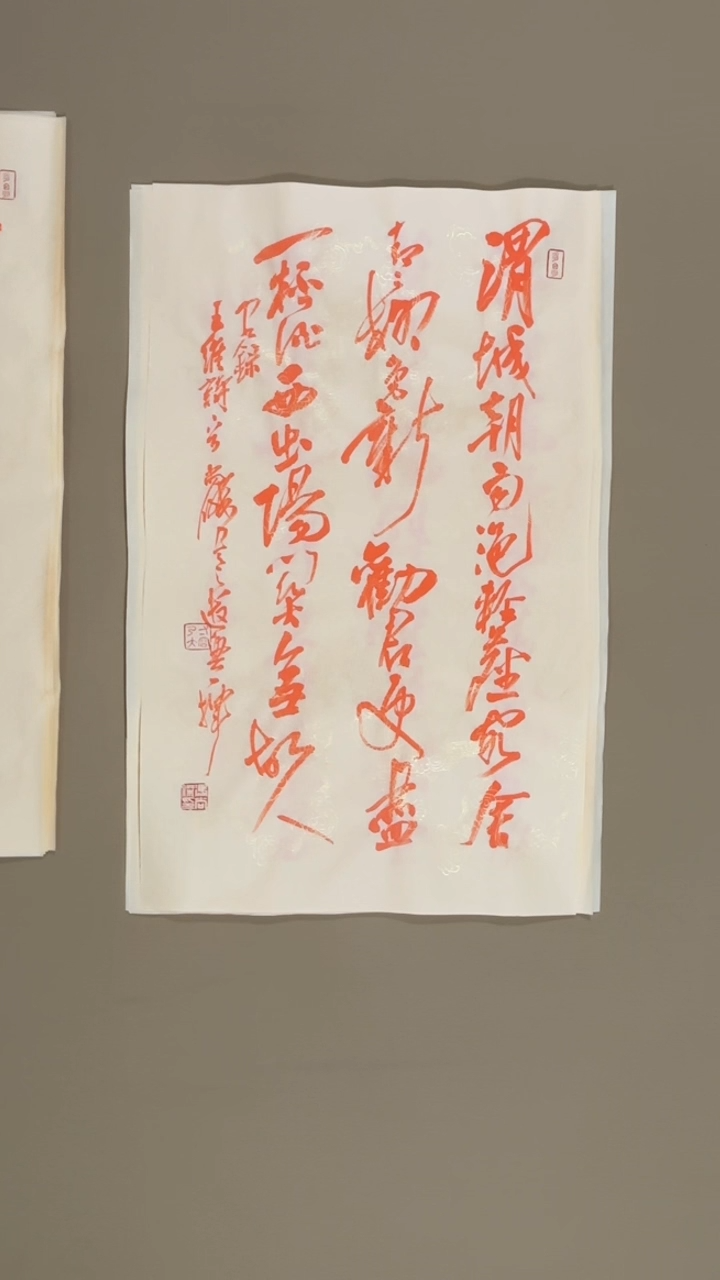 渭城朝雨浥輕塵客舍
青〻柳色新勸君更盡
一杯酒西出陽關無故人
錄
王維詩